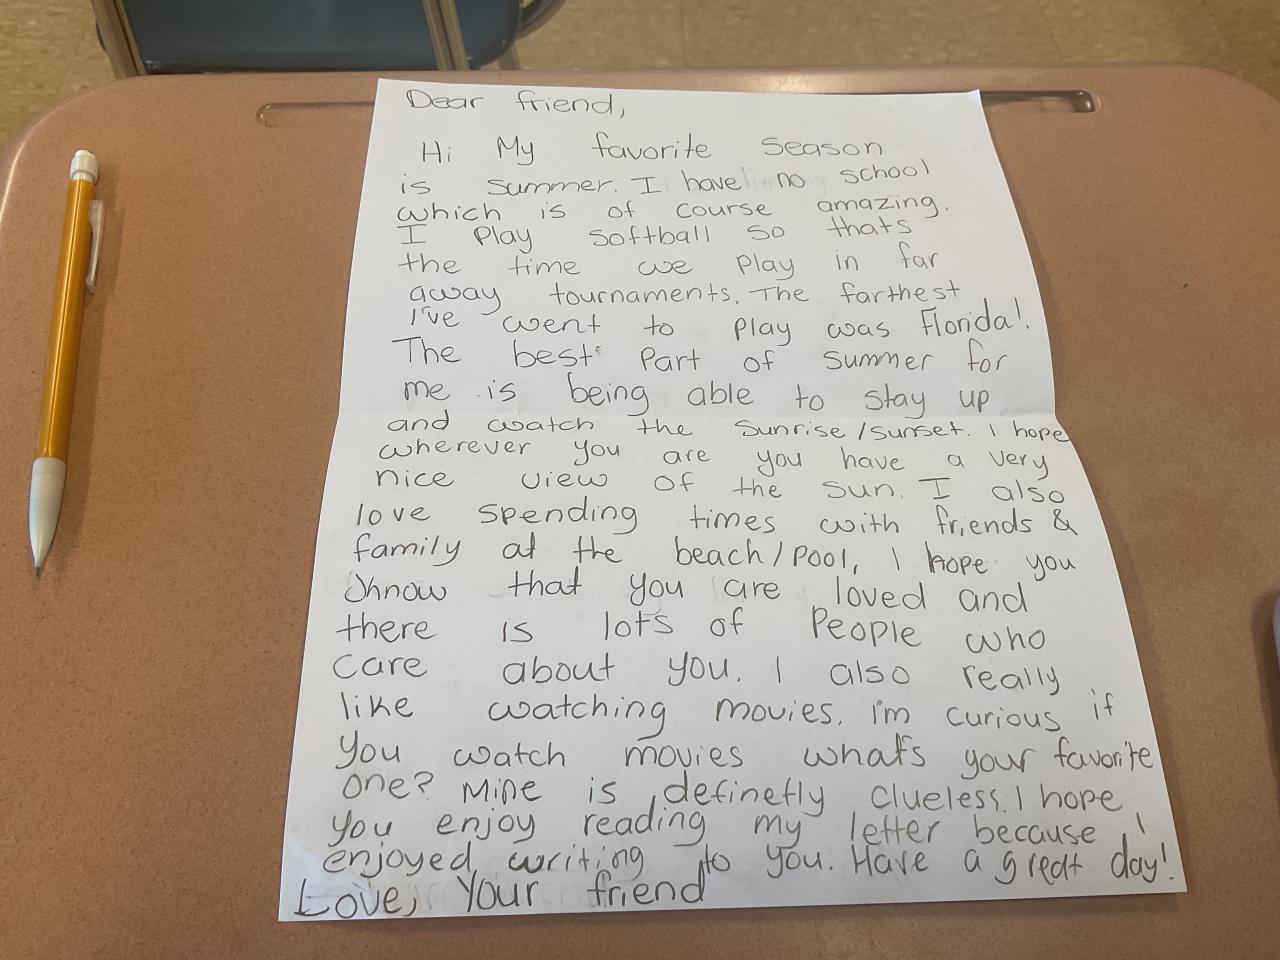 Dear friend,
Hi My favorite season
is summer. I have no school
which is of course amazing.
I play softball so thats
the time we play in far
away tournaments. The farthest
I've went to play was Florida!
The best part of summer for
me is being able to stay up
and watch the sunrise/sunset. I hope
wherever you are you have a very
nice view of the sun. I also
love spending times with friends &
family at the beach/pool, I hope you
know that you are loved and
there is lots of people who
care about you. I also really
like watching movies. I'm curious if
you watch movies what's your favorite
one? Mine is definetly clueless. I hope
you enjoy reading my letter because I
enjoyed writing to you. Have a great day!
Love, Your friend